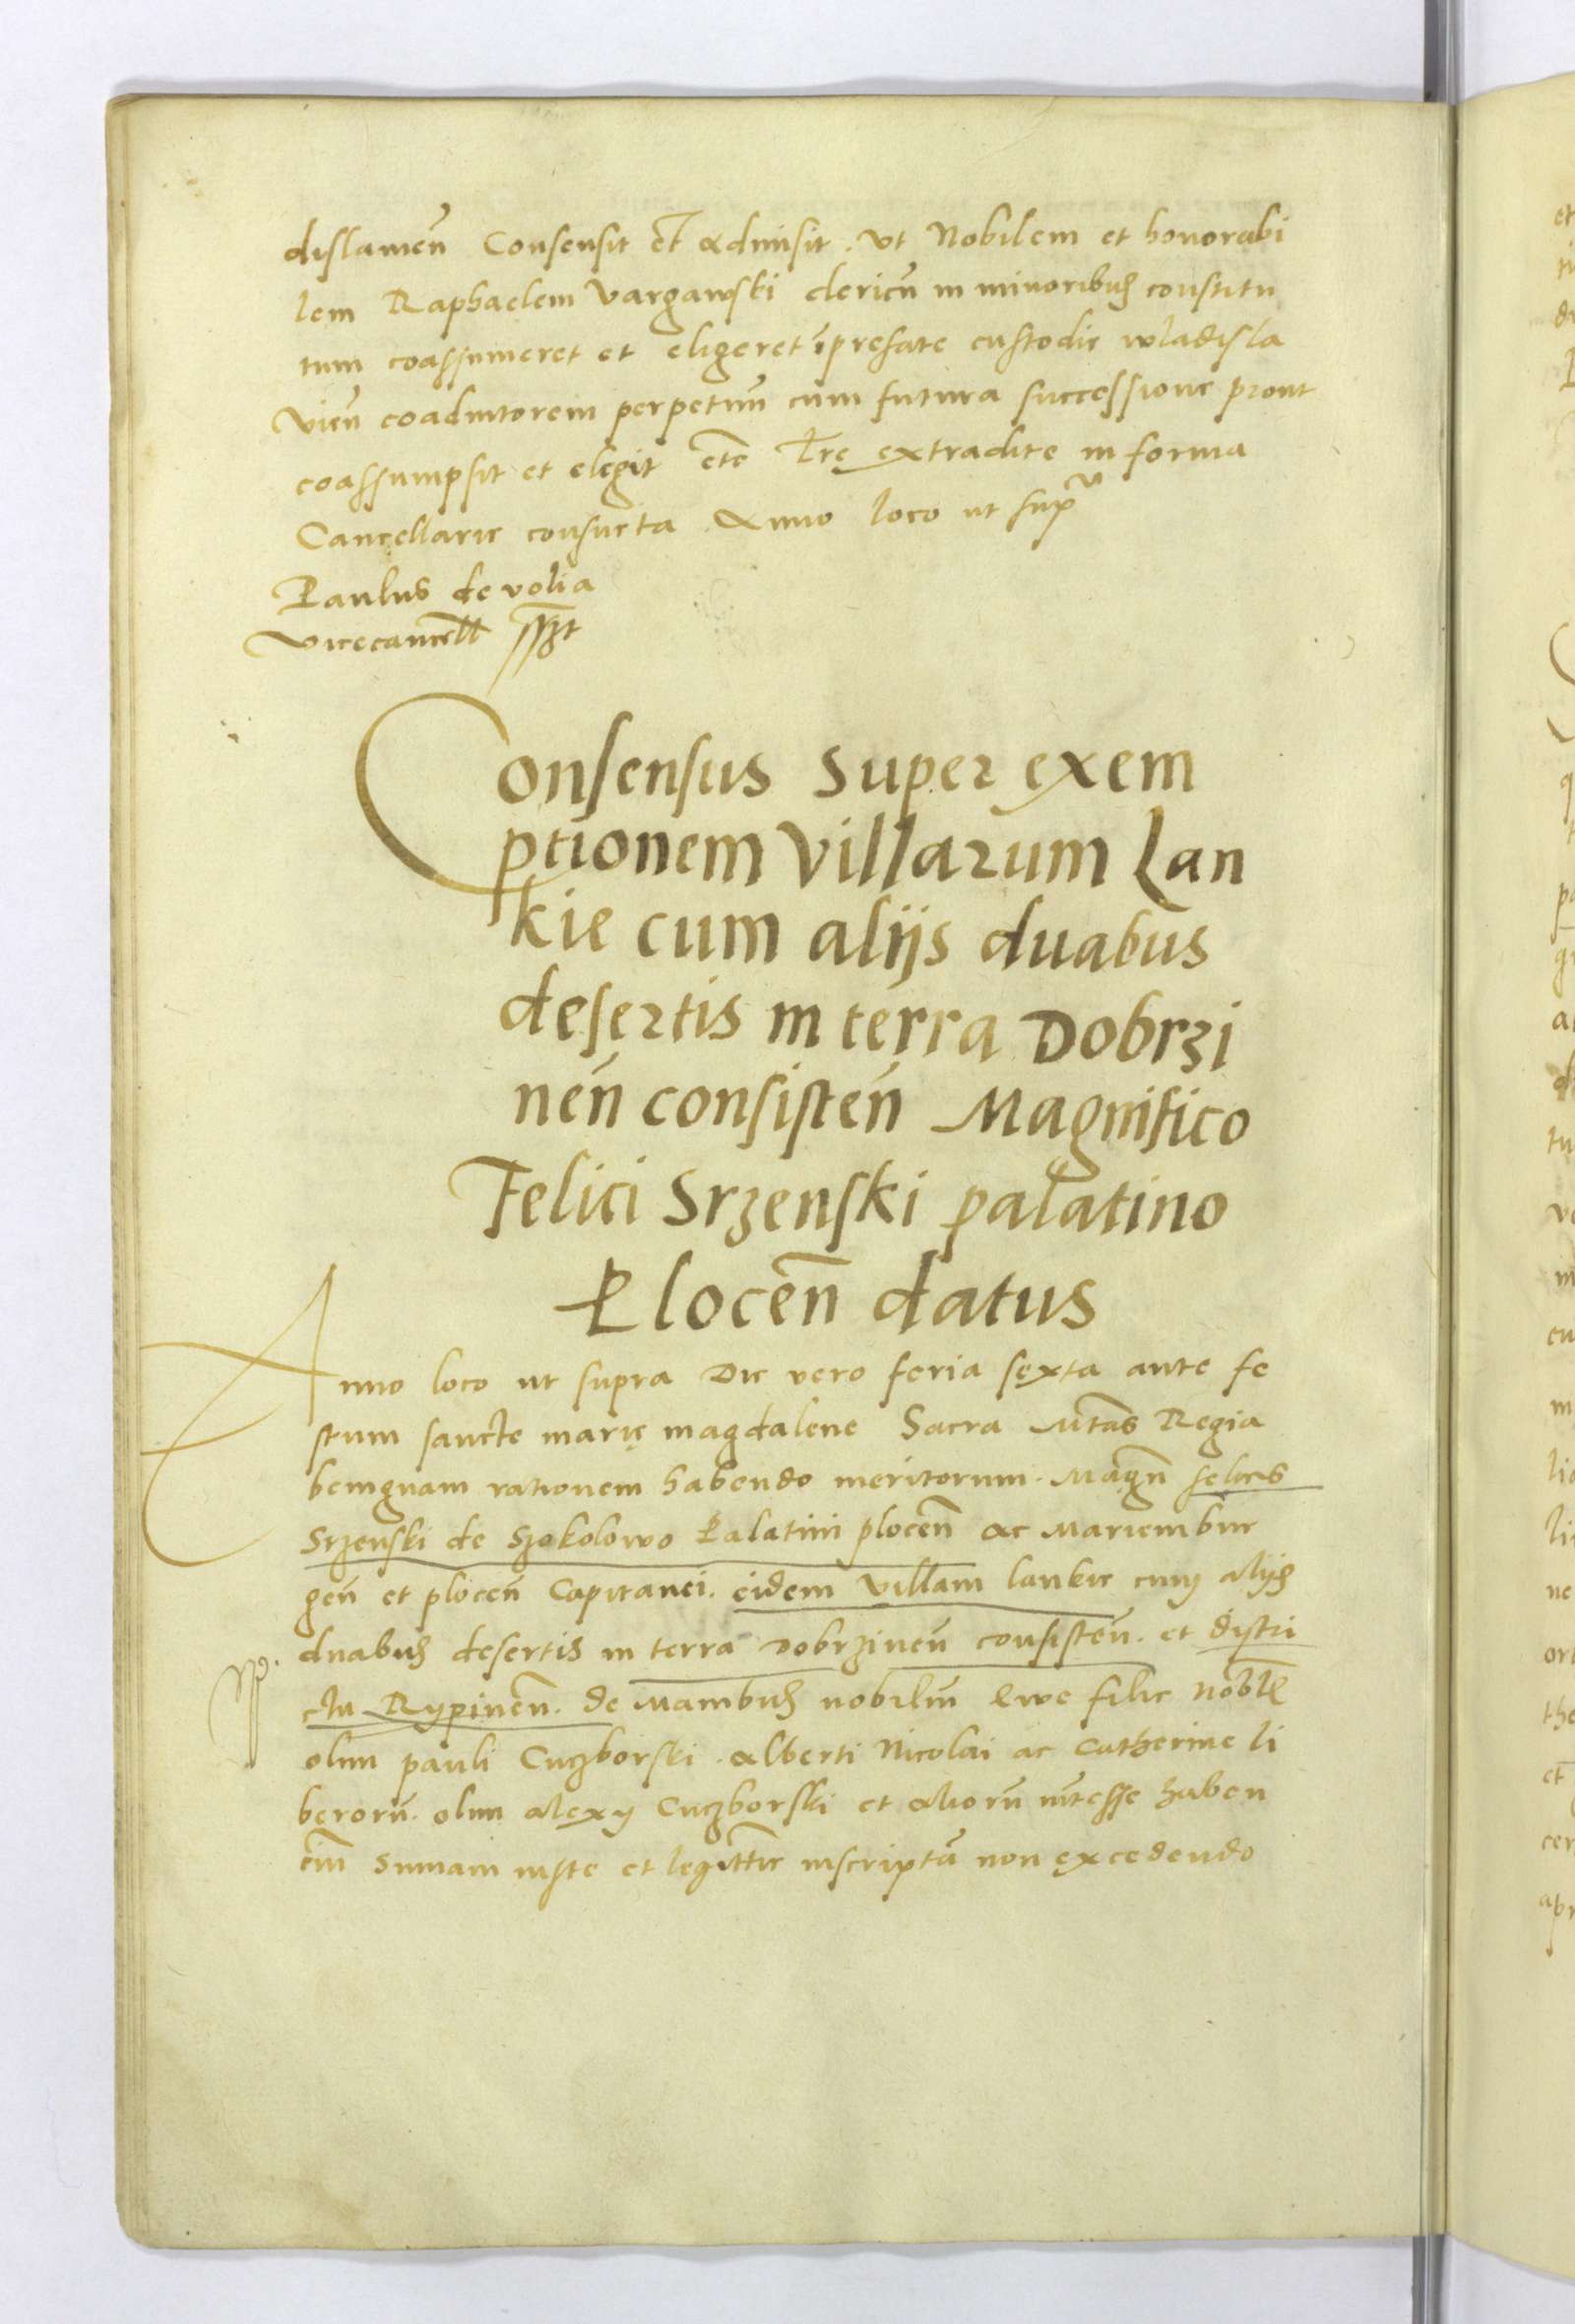 dislamen̄ Consensit et admisit. Ut Nobilem et honorabi
lem Raphaelem Vargawski clericū in minoribus constitu
tum coassumeret et eligeret prefate custodie wladisla
vien̄ coadiutorem perpetuū cum futura successione prout
coassumpsit et elegit etc̄ Lr̄e extradite in forma
Cancellarie consueta Anno loco ut supᵃ
Paulus de volia
vicecancell̄ sszt
Consensus super exem
ptionem villarum Lan
kie cum alijs duabus
desertis in terra Dobrzi
nen̄ consisten̄ Magnifico
Felici Srzenski palatino
Plocen̄ datus
Anno loco ut supra Die vero feria sexta ante fe
stum sancte marie magdalene Sacra Mtās Regia
benignam rationem habendo meritorum. Magn̄ felicis
Srzenski de Szokolowo Palatini plocen̄ ac Mariembur
gen̄ et plocen̄ Capitanei. eidem villam lankie cum alijs
duabus desertis in terra Dobrzinen̄ consisten̄. et distri
ctu Rypinen̄. de manibus nobiliū Ewe filie nobl̄
olim pauli Cuczborski. Alberti Nicolai ac Catherine li
berorū. olim Alexy Cuczborski et aliorū int̄esse haben
ciū Sumam iuste et legitt̄ie inscriptā non excedendo